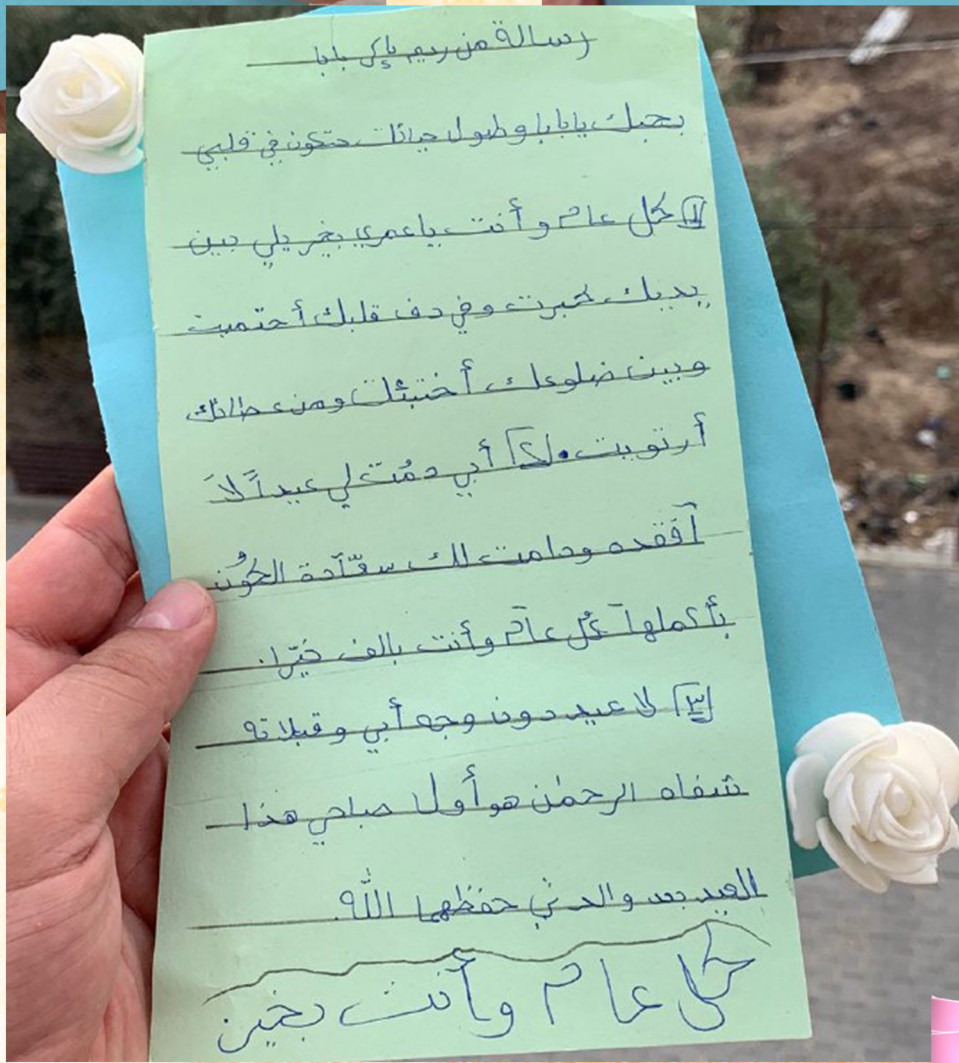 رسالة من ريم إلى بابا
بحبك يا بابا وطول حياتك حتكون في قلبي
١ كل عام وأنت يا عمري بخير يلي بين
يديك كبرت وفي دف قلبك أحتميت
وبين ضلوعك أختبئت ومن عطائك
أرتويت. ٢ أبي دمُت لي عيداً لاَ
آفقده ودامت لك سعّآدة الكوُن
بأكملهآ كُل عآم وأنت بالف خيّر.
٣ لا عيد دون وجه أبي وقبلاته
شفاه الرحمٰن هو أولا صباحي هذا
العيد بعد والدتي حفظهما اللّٰه.
كل عام وأنت بخير